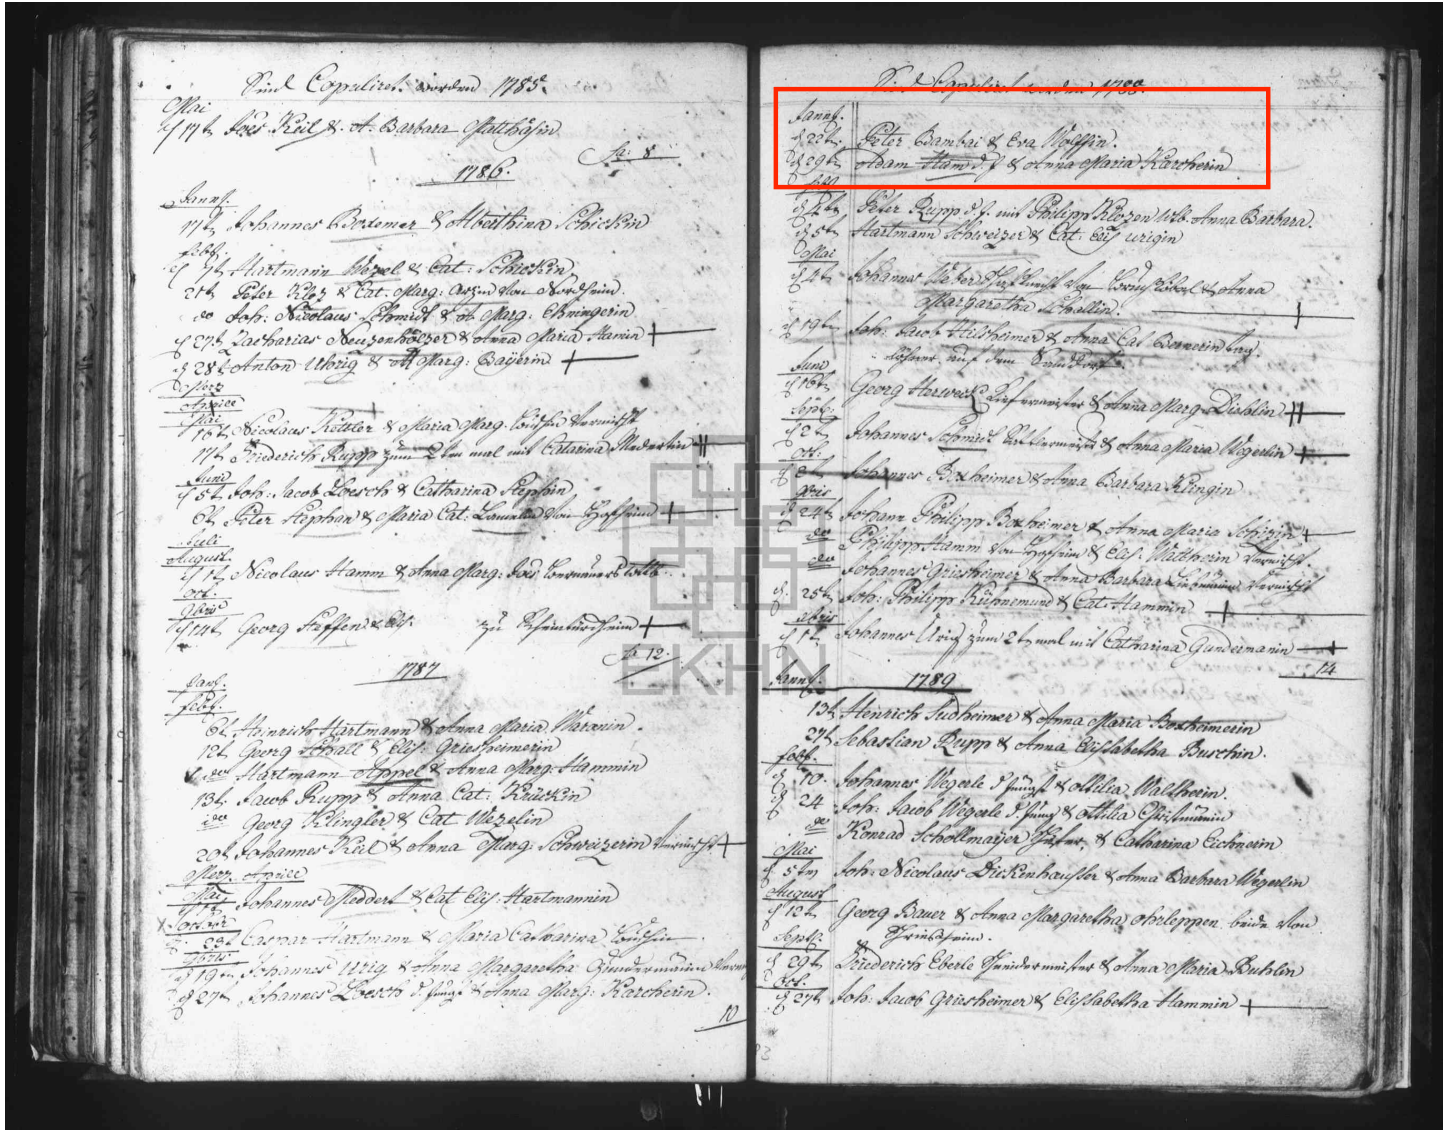 Sind Copuliret worden 1785.
Mai
17t Joes Keil & A. Barbara Matthäsin
Sa: 8
1786.
Jann.
17t Johannes Boxemer & Alberthina Schickin
Febr.
7t Hartmann Wezel & Cat: Schickin
21t Peter Kloz & Cat. Marg: von Nordheim.
do Joh: Nicolaus Schmidt & A Marg: Ehmingerin
27t Zacharias Neuzenhölzer & Anna Maria Hamin
28t Anton Uhrig & A Marg: Bayerin
Merz
Aprill
Mai
16t Nicolaus Kettler & Maria Marg.
17t Friderich Rupp zum 2ten mal mit Catarina Mederlin
Juni
5t Joh: Jacob Loesch & Catharina Stephin
6t Peter Stephan & Maria Cat: von Hofheim
Juli
August
1t Nicolaus Hamm & Anna Marg: Joes
Oct.
9bris
14t Georg Steffen & Elis. zu Rheintürckheim
Sa 12.
1787
Jann.
Febr.
6t Heinrich Hartmann & Anna Maria
12t Georg Schall & Elis. Griesheimerin
do Hartmann Appel & Anna Marg: Hammin
13t Jacob Rupp & Anna Cat: Krückin
do Georg Klingler & Cat Wezelin
20t Johannes Keil & Anna Marg: Schweizerin
Merz Aprill
Mai
Johannes Meddert & Cat Elis. Hartmannin
Octobr
23t Caspar Hartmann & Maria Catharina
9bris
19ten Johannes Urig & Anna Margaretha Gundermännin
27t Johannes Loesch d. Jung & Anna Marg: Karcherin.
10
Sind Copuliret worden 1788.
Jann.
22t Peter Bambai & Eva Wolffin.
29t Adam Ham d. J & Anna Maria Karcherin
Feb
Peter Rupp d. J. mit Philipp Klozen Wtb. Anna Barbara.
5t Hartmann Schweizer & Cat: Elis Urigin
Mai
4t Johannes Weber & Anna
Margaretha Schallin.
19ten Joh: Jacob Hilsheimer & Anna Cat Bernerin
auf dem
Juni
16t Georg Herweck & Anna Marg. Diehlin
Sept:
2t Johannes Schmidt & Anna Maria Wegerlin
Oct.
8t Johannes Boxheimer & Anna Barbara Klingin
9bris
24t Johann Philipp Boxheimer & Anna Maria
do Philipp Hamm von Hofheim & Elis. Waltherin
do Johannes Griesheimer & Anna Barbara
25t Joh: Philipp Kühnemund & Cat: Hammin
xbris
1t Johannes Urig zum 2t mal mit Catharina Gundermanin
14
Jann. 1789
13t Heinrich Sudheimer & Anna Maria Boxheimerin
27t Sebastian Rupp & Anna Elisabetha Buschin.
Febr.
10. Johannes Wegerle d Jüngst & Ottilia Waltherin.
24 Joh: Jacob Wegerle d. Jung & Ottilia
do Konrad Schollmayer & Catharina Eichnerin
Mai
5ten Joh: Nicolaus Dickenhausser & Anna Barbara Wegerlin
August
12t Georg Bauer & Anna Margaretha beide von
Griesheim.
Sept.
29t Friederich Eberle Schneidermeister & Anna Maria Buhlin
Oct.
27t Joh: Jacob Griesheimer & Elisabetha Hammin
EKHN